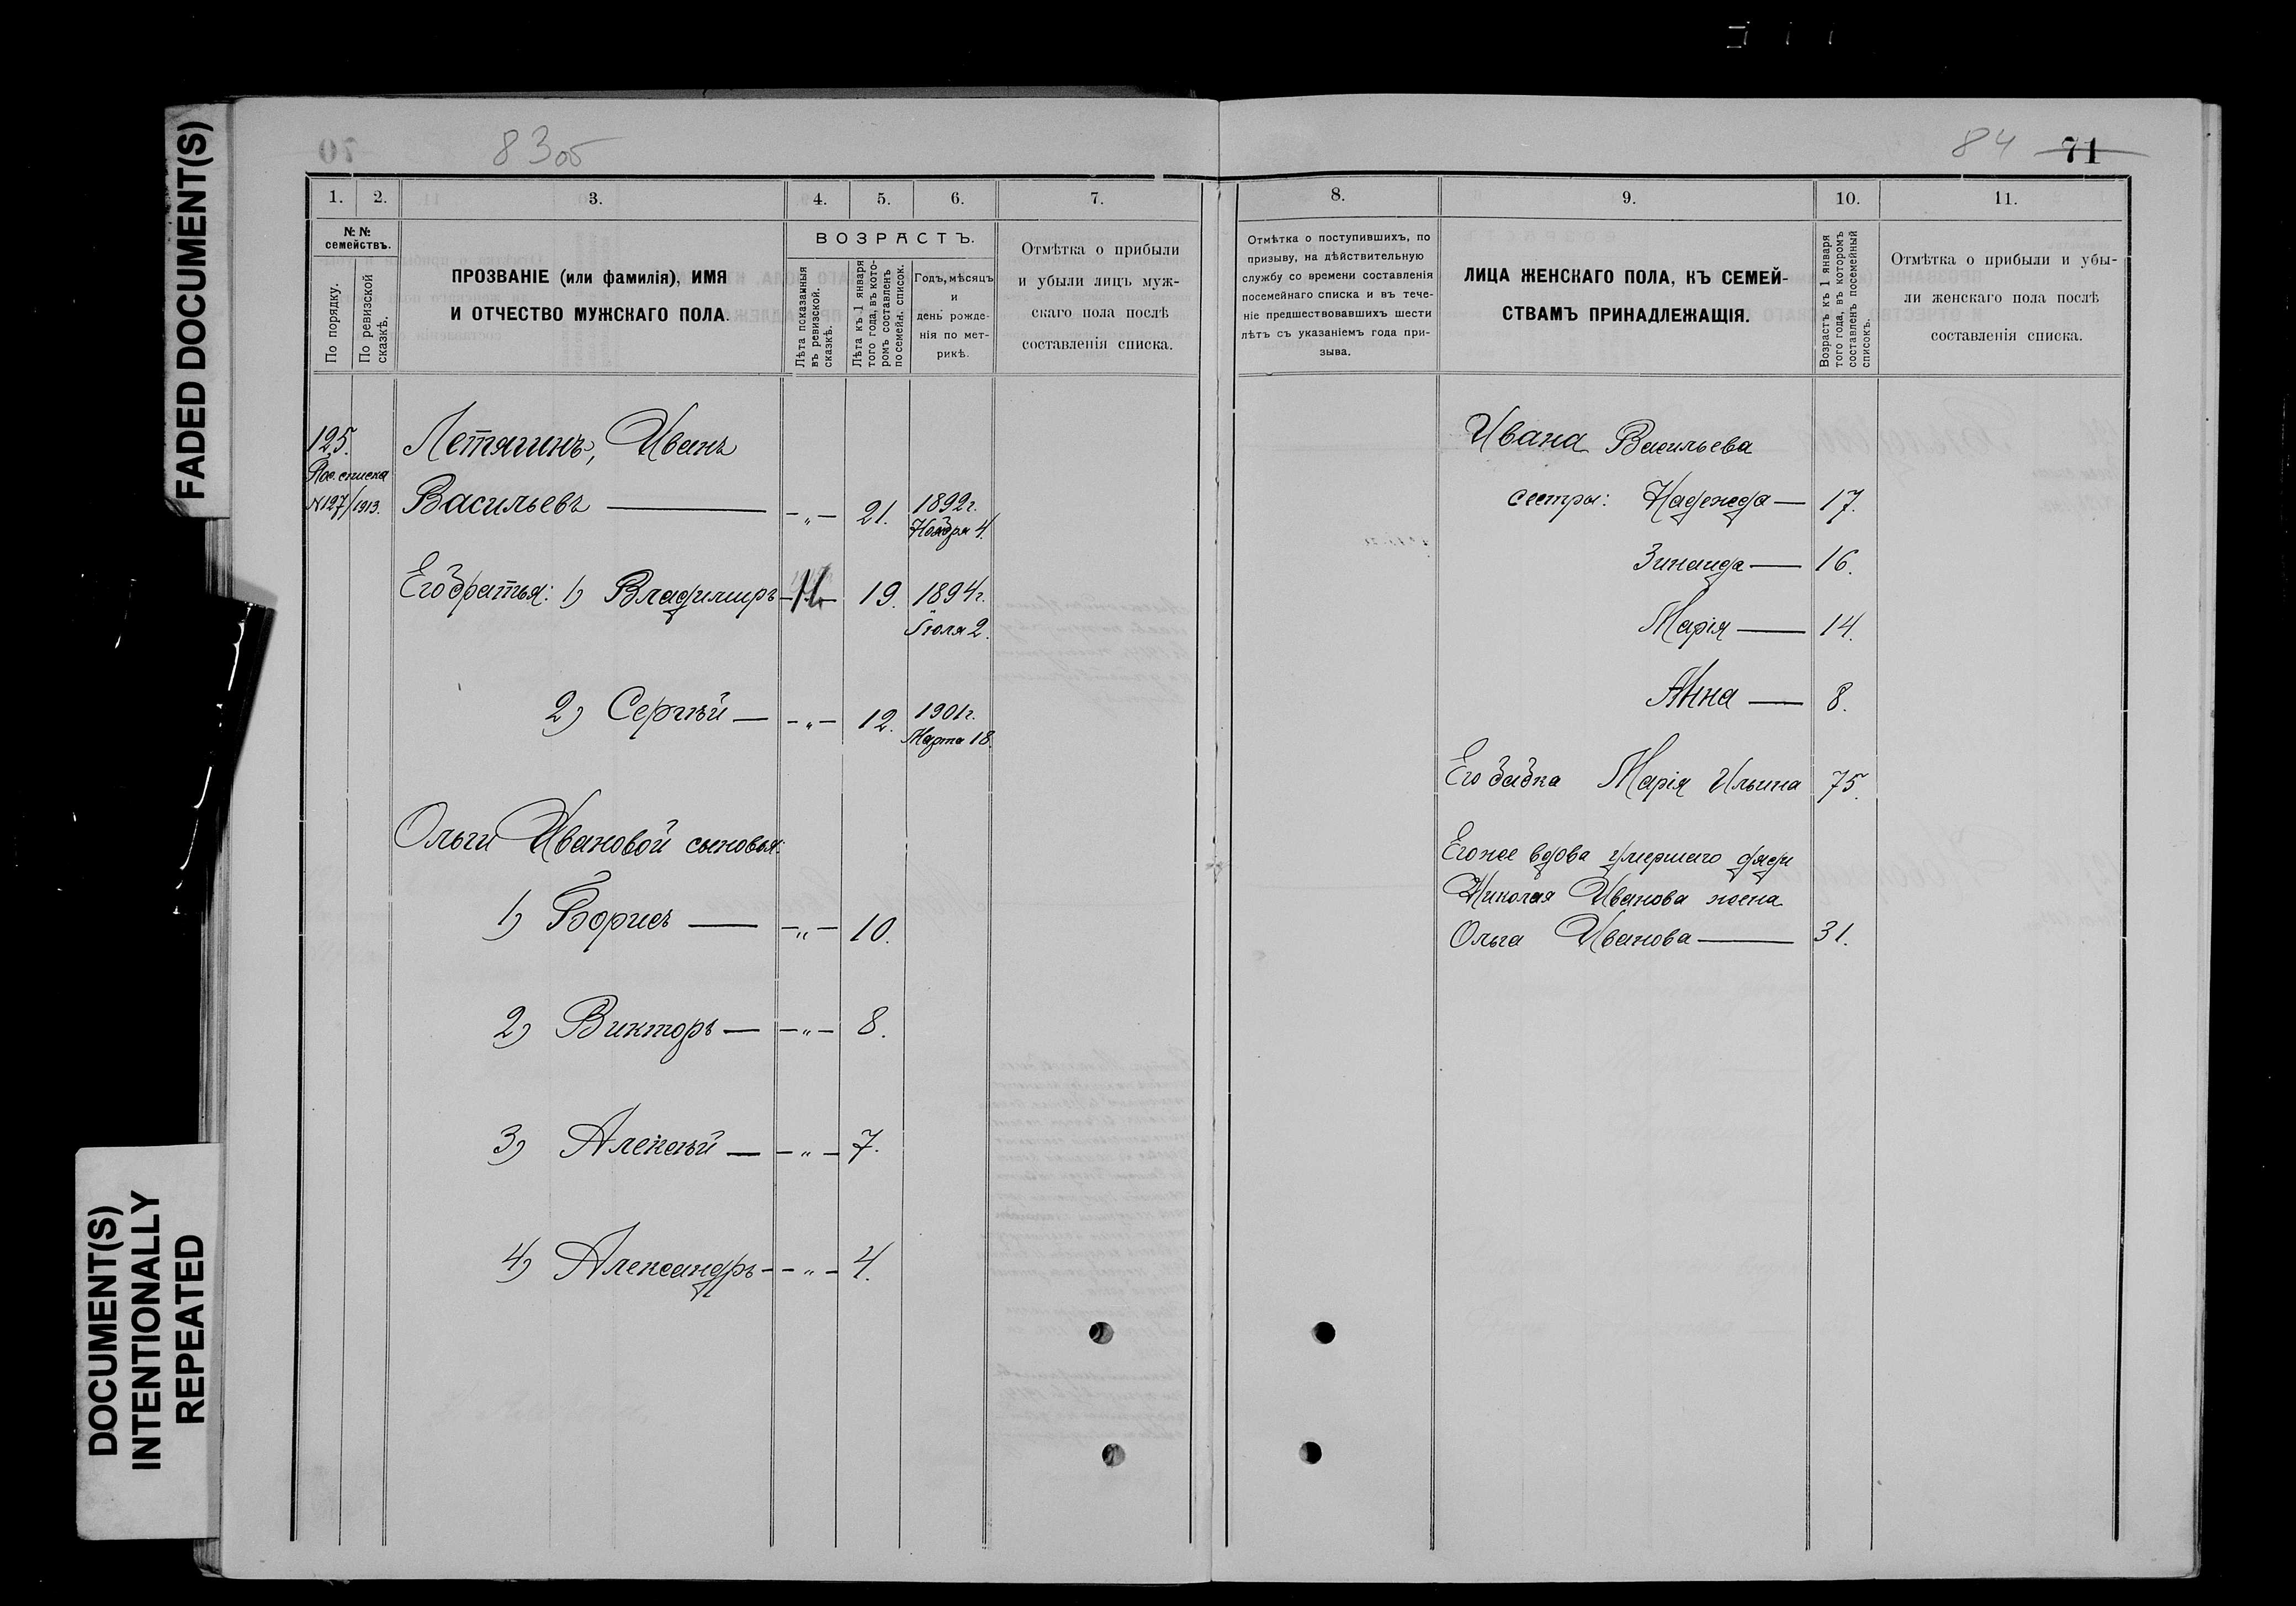 FADED DOCUMENT(S)
DOCUMENT(S)
INTENTIONALLY
REPEATED
70
83об
1. 2. 3. 4. 5. 6. 7.
№ №
семействъ.
По порядку.
По ревизской
сказкѣ.
ПРОЗВАНІЕ (или фамилія), ИМЯ
И ОТЧЕСТВО МУЖСКАГО ПОЛА.
ВОЗРАСТЪ.
Лѣта показанныя
въ ревизской.
сказкѣ.
Лѣта къ 1 января
того года, въ кото-
ромъ составленъ
посемейн. список.
Годъ, мѣсяцъ
и
день рожде-
нія по мет-
рикѣ.
Отмѣтка о прибыли
и убыли лицъ муж-
скаго пола послѣ
составленія списка.
125.
Пос. списка
№127/1913.
Летягинъ, Иванъ
Васильевъ — -„- 21. 1892г.
Ноября 4.
Его братья: 1) Владимиръ 19. 1894г.
Іюля 2.
2) Сергѣй — -„- 12. 1901г.
Марта 18.
Ольги Ивановой сыновья:
1) Борисъ — -„- 10.
2) Викторъ — -„- 8.
3) Алексѣй — -„- 7.
4) Александръ - -„- 4.
84 71
8. 9. 10. 11.
Отмѣтка о поступившихъ, по
призыву, на дѣйствительную
службу со времени составленія
посемейнаго списка и въ тече-
ніе предшествовавшихъ шести
лѣтъ съ указаніемъ года при-
зыва.
ЛИЦА ЖЕНСКАГО ПОЛА, КЪ СЕМЕЙ-
СТВАМЪ ПРИНАДЛЕЖАЩІЯ.
Возрастъ къ 1 января
того года, въ которомъ
составленъ посемейный
списокъ.
Отмѣтка о прибыли и убы-
ли женскаго пола послѣ
составленія списка.
Ивана Васильева
сестры: Надежда — 17.
Зинаида — 16.
Марія — 14.
Анна — 8.
Его бабка Марія Ильина 75.
Его же вдова умершаго дяди
Николая Иванова жена
Ольга Иванова — 31.